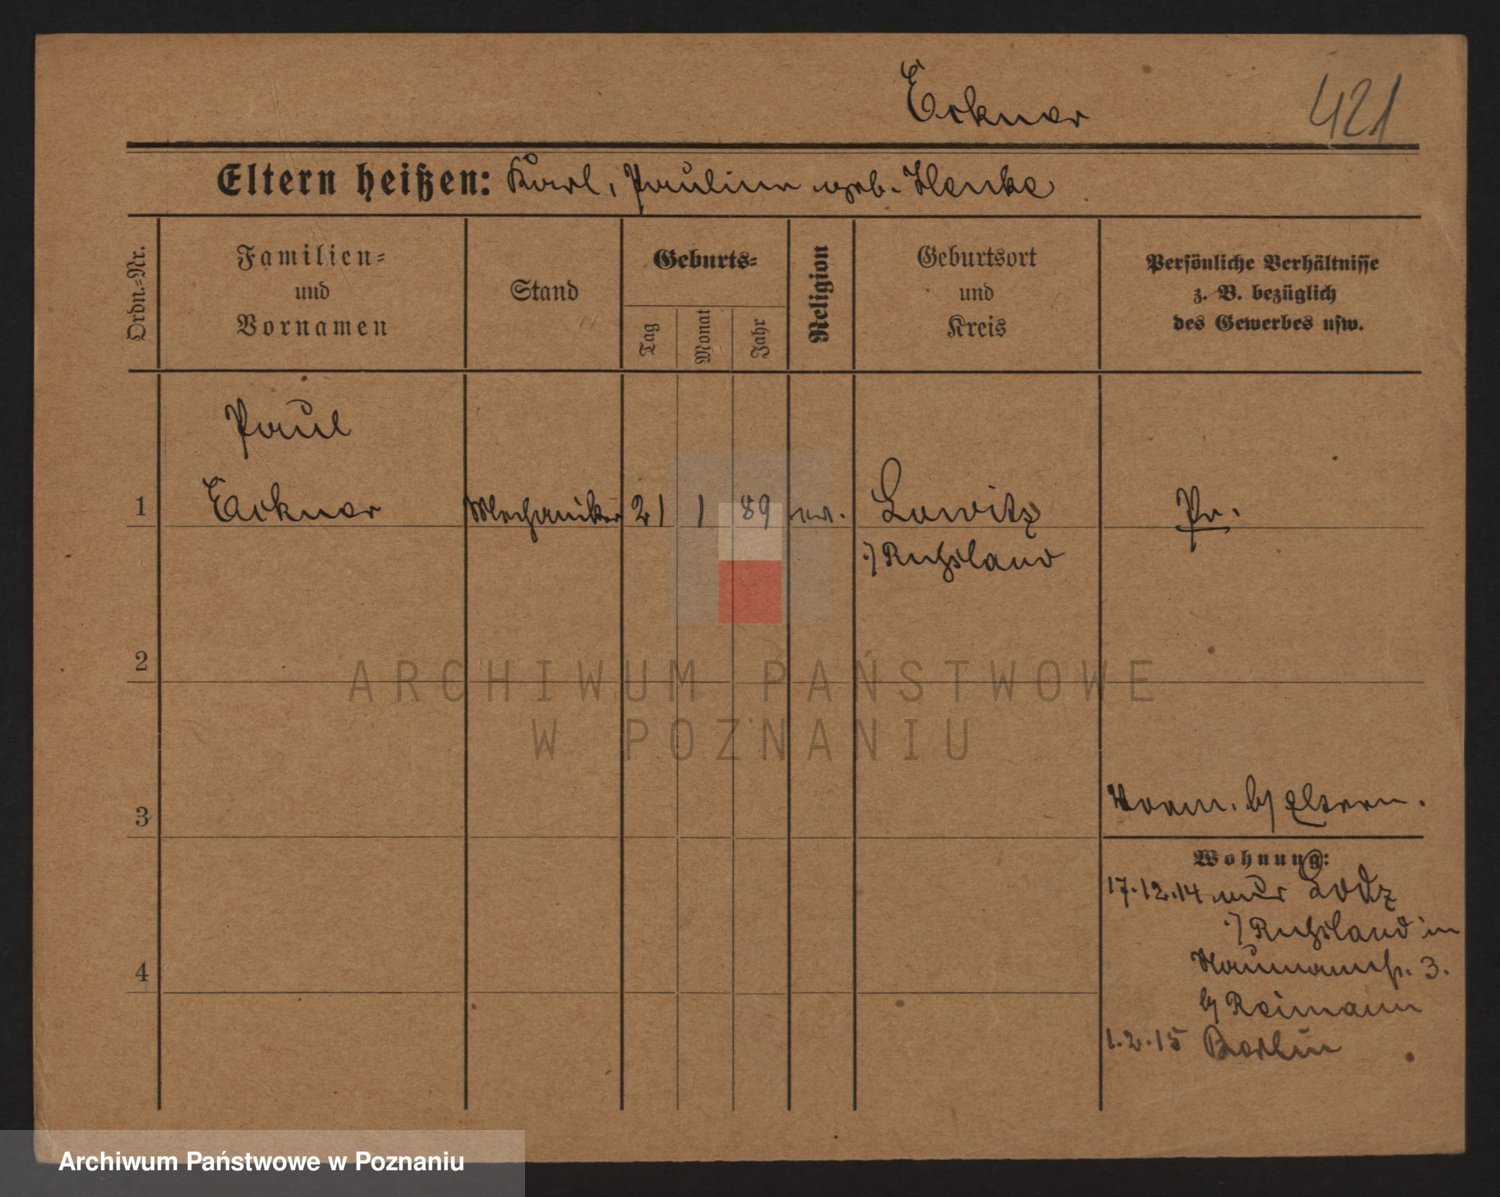 Eckner
421
Eltern heißen: Karl, Pauline geb. Henke
Ordn.-Nr.
Familien-
und
Vornamen
Stand
Geburts-
Tag
Monat
Jahr
Religion
Geburtsort
und
Kreis
Persönliche Verhältnisse
z. B. bezüglich
des Gewerbes usw.
Paul
1 Eckner Mechaniker 21 1 89 ev. Lowitz Pr.
:/ Rußland
2
3
Eltern.
Wohnung:
17.12.14 aus Lodz
:/ Rußland in
Naumannstr. 3.
b/ Reimann
4
1.2.15 Berlin
ARCHIWUM PAŃSTWOWE
W POZNANIU
Archiwum Państwowe w Poznaniu